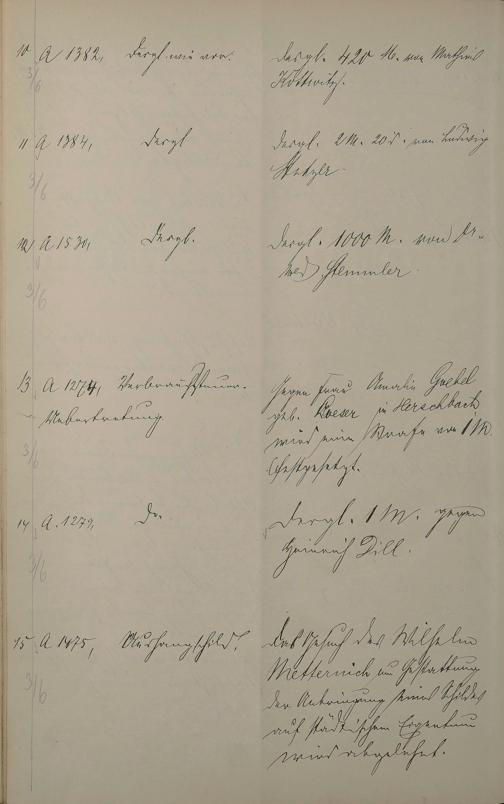 10 A 1382, Dergl. wie vor. Dergl. 420 M. von Mathias
3/6
Kottwitz.
11 A 1384, Dergl Dergl. 2 M. 20 . von Ludwig
3/6
12 A 1530, Dergl. Dergl. 1000 M. von Dr.
med. Stemmler.
3/6
13 A 1274, Verbrauchssteuer- Gegen Frau Amalie Goebel
Uebertretung geb. Loeser in Herschbach
wird eine Strafe von 1 M.
3/6
festgesetzt.
14 A. 1279, Do. Dergl. 1 M. gegen
Heinrich Dill.
3/6
15 A 1475, Aushangschild. Das Gesuch des Wilhelm
Metternich um Gestattung
3/6
der Anbringung eines Schildes
auf städtischem Eigentum
wird abgelehnt.